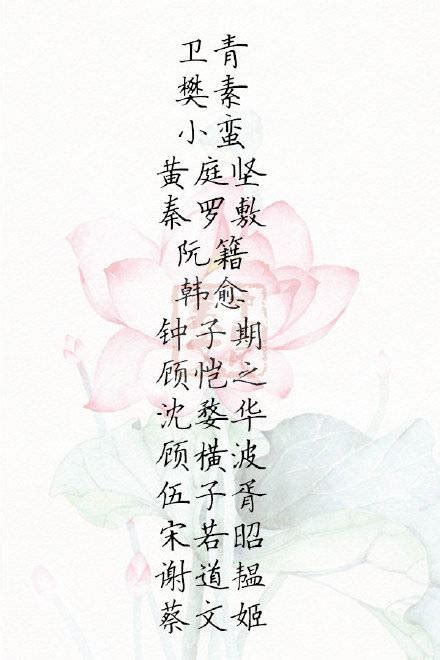 卫青
樊素
小蛮
黄庭坚
秦罗敷
阮籍
韩愈
钟子期
顾恺之
沈婺华
顾横波
伍子胥
宋若昭
谢道韫
蔡文姬